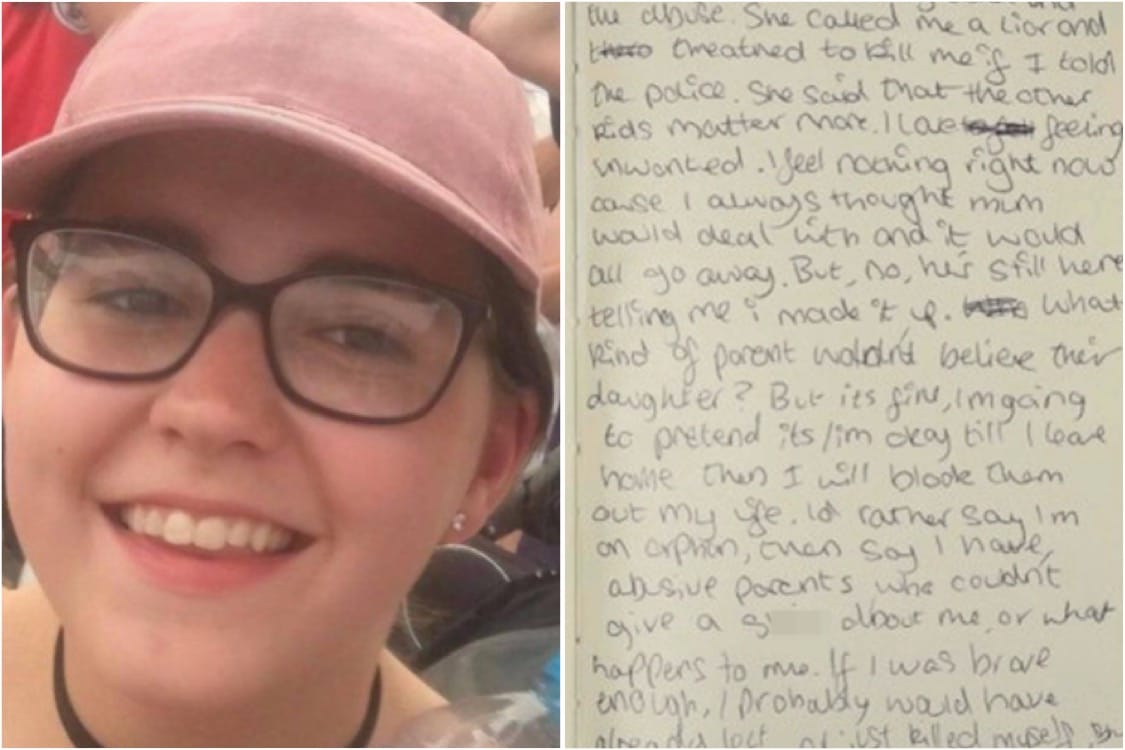 the abuse. She called me a liar and
threatned to kill me if I told
the police. She said that the other
kids matter more. I love feeling
unwanted. I feel nothing right now
cause I always thought mum
would deal with and it would
all go away. But, no, he's still here
telling me i made it up. What
kind of parent woldn't believe their
daughter? But its fine, im going
to pretend its/im okay till I leave
home then I will blook them
out my life. Id rather say I'm
an orphan, then say I have,
abusive parents who couldn't
give a s about me, or what
happens to me. If I was brave
enough, I probably would have
already left or just killed myself